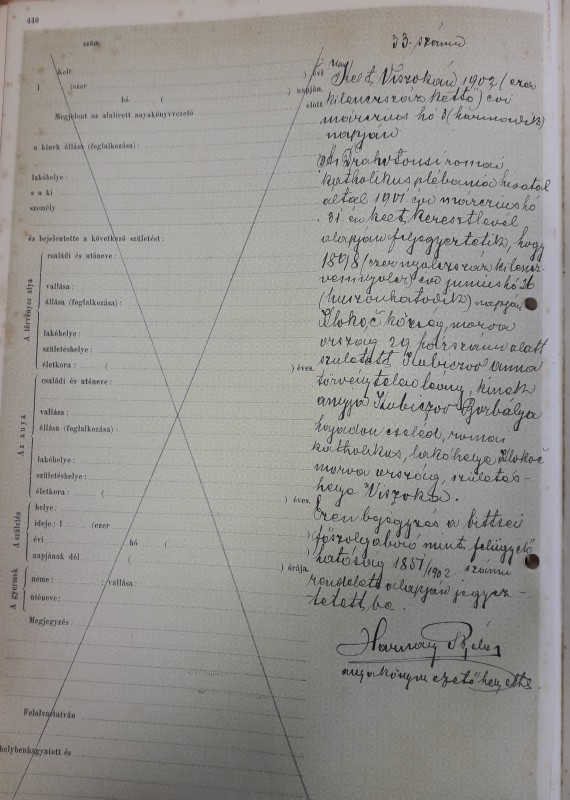 440
szám.
33. szám
Kelt
évi
1 (ezer ) napján.
hó ( előtt
Megjelent az alulirott anyakönyvvezető
a kinek állása (foglalkozása) :
lakóhelye :
s a ki
személy
és bejelentette a következő születést :
A törvényes atya
családi és utóneve :
vallása :
állása (foglalkozása) :
lakóhelye :
születéshelye :
életkora : ( ) éves.
Az anya
családi és utóneve :
vallása :
állása (foglalkozása) :
lakóhelye :
születéshelye :
életkora : ( ) éves.
A születés
helye :
ideje : 1 (ezer )
évi hó (
napjának dél ) órája.
A gyermek
neme : ; vallása :
utóneve :
Megjegyzés
Felolvastatván
helybenhagyatott és
Kelt, Viszokán, 1902 (ezer
kilenczszázkettő) évi
marczius hó 3 (harmadik)
napján
római
katholikus plébánia hivatal
által 1901. évi marczius hó
31 én kelt, keresztlevél
alapján feljegyeztetik, hogy
1898 (ezernyolczszáz kilencz-
vennyolcz) évi junius hó 26
(huszonhatodik) napján
Klokoč község, morva
ország 29 házszám alatt
született anna
törvénytelen leány, kinek
anyja Borbálya
hajadon cseléd, római
katholikus, lakóhelye Klokoč
morva ország, születés-
helye Viszoka.
Ezen bejegyzés a bittsei
főszolgabiró mint felügyelő
hatóság 1857/1902 számú
rendelete alapján jegyez-
tetett be.
anyakönyvvezető helyettes.